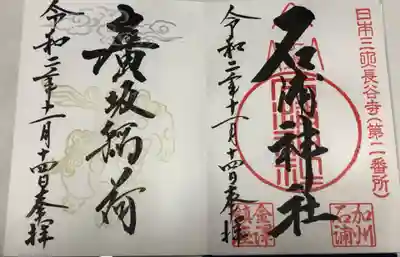 日本三 長谷寺(第二番所)
石浦神社
加州
石浦
令和二年十一月十四日奉拝
廣坂稲荷
令和二年十一月十四日奉拝